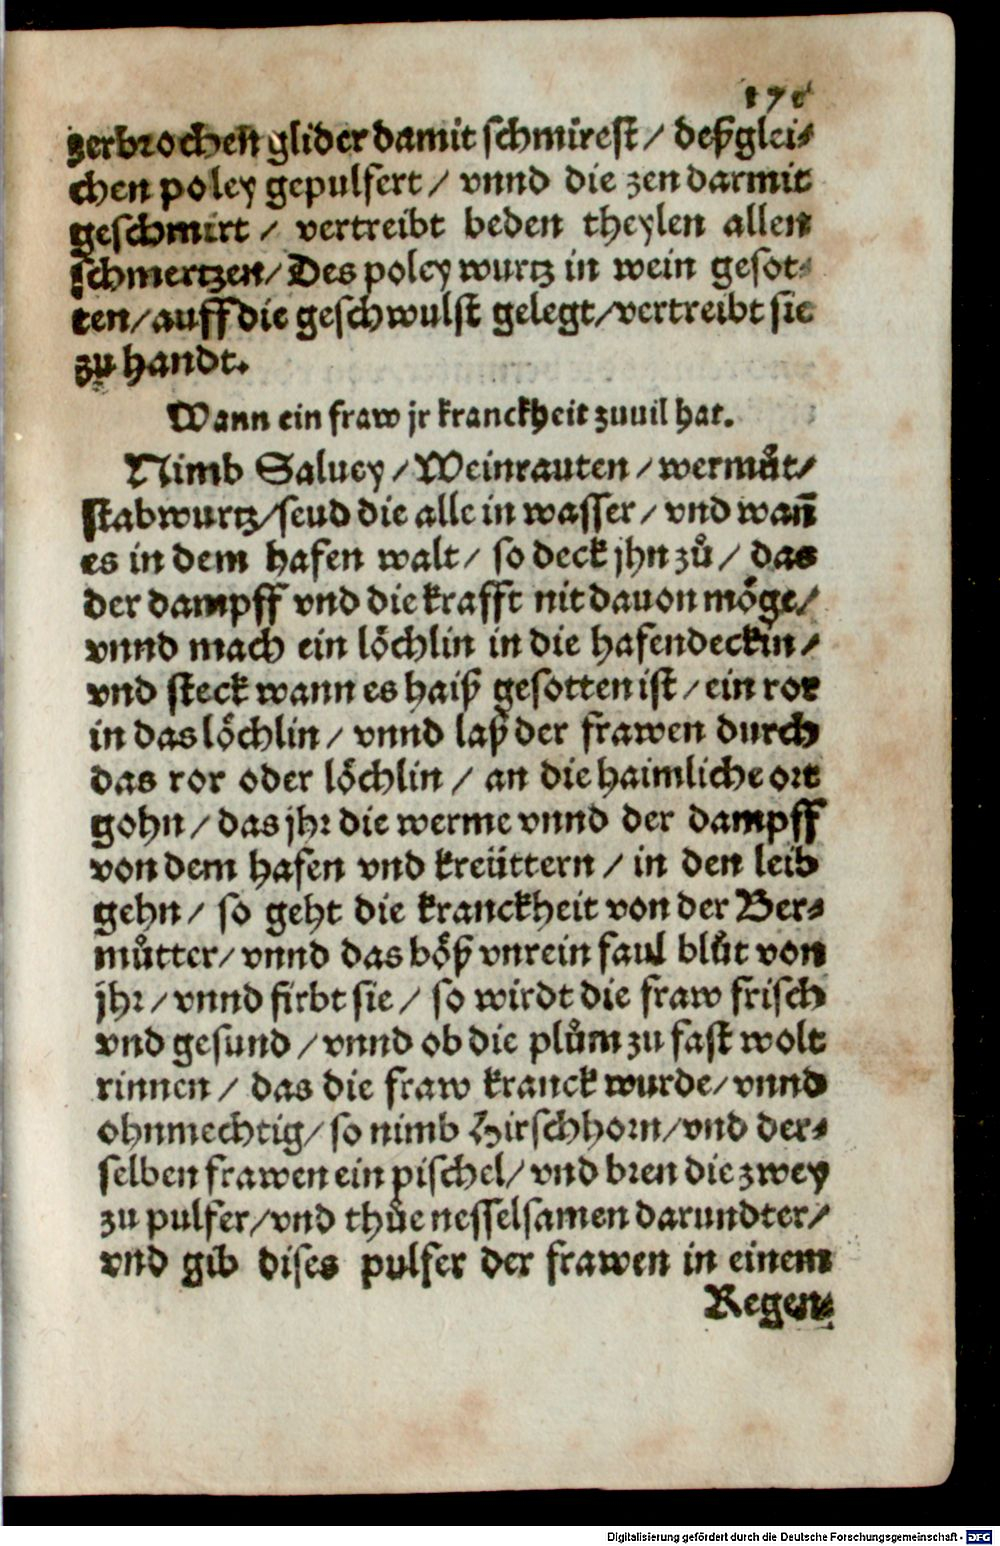 zerbrochen glider damit schmirest / deßglei⸗
chen poley gepulfert / vnnd die zen darmit
geschmirt / vertreibt beden theylen allen
schmertzen / Des poley wurtz in wein gesot⸗
ten / auff die geschwulst gelegt / vertreibt sie
zů handt.
Wann ein fraw jr kranckheit zuuil hat.
Nimb Saluey / Weinrauten / wermůt /
stabwurtz / seud die alle in wasser / vnd wañ
es in dem hafen walt / so deck jhn zů / das
der dampff vnd die krafft nit dauon möge /
vnnd mach ein löchlin in die hafendeckin /
vnd steck wann es haiß gesotten ist / ein ror
in das löchlin / vnnd laß der frawen durch
das ror oder löchlin / an die haimliche ort
gohn / das jhr die werme vnnd der dampff
von dem hafen vnd kreüttern / in den leib
gehn / so geht die kranckheit von der Ber⸗
můtter / vnnd das böß vnrein faul blůt von
jhr / vnnd firbt sie / so wirdt die fraw frisch
vnd gesund / vnnd ob die plům zu fast wolt
rinnen / das die fraw kranck wurde / vnnd
ohnmechtig / so nimb Hirschhorn / vnd der⸗
selben frawen ein pischel / vnd bren die zwey
zu pulfer / vnd thůe nesselsamen darundter /
vnd gib dises pulfer der frawen in einem
Regen⸗
Digitalisierung gefördert durch die Deutsche Forschungsgemeinschaft - DFG